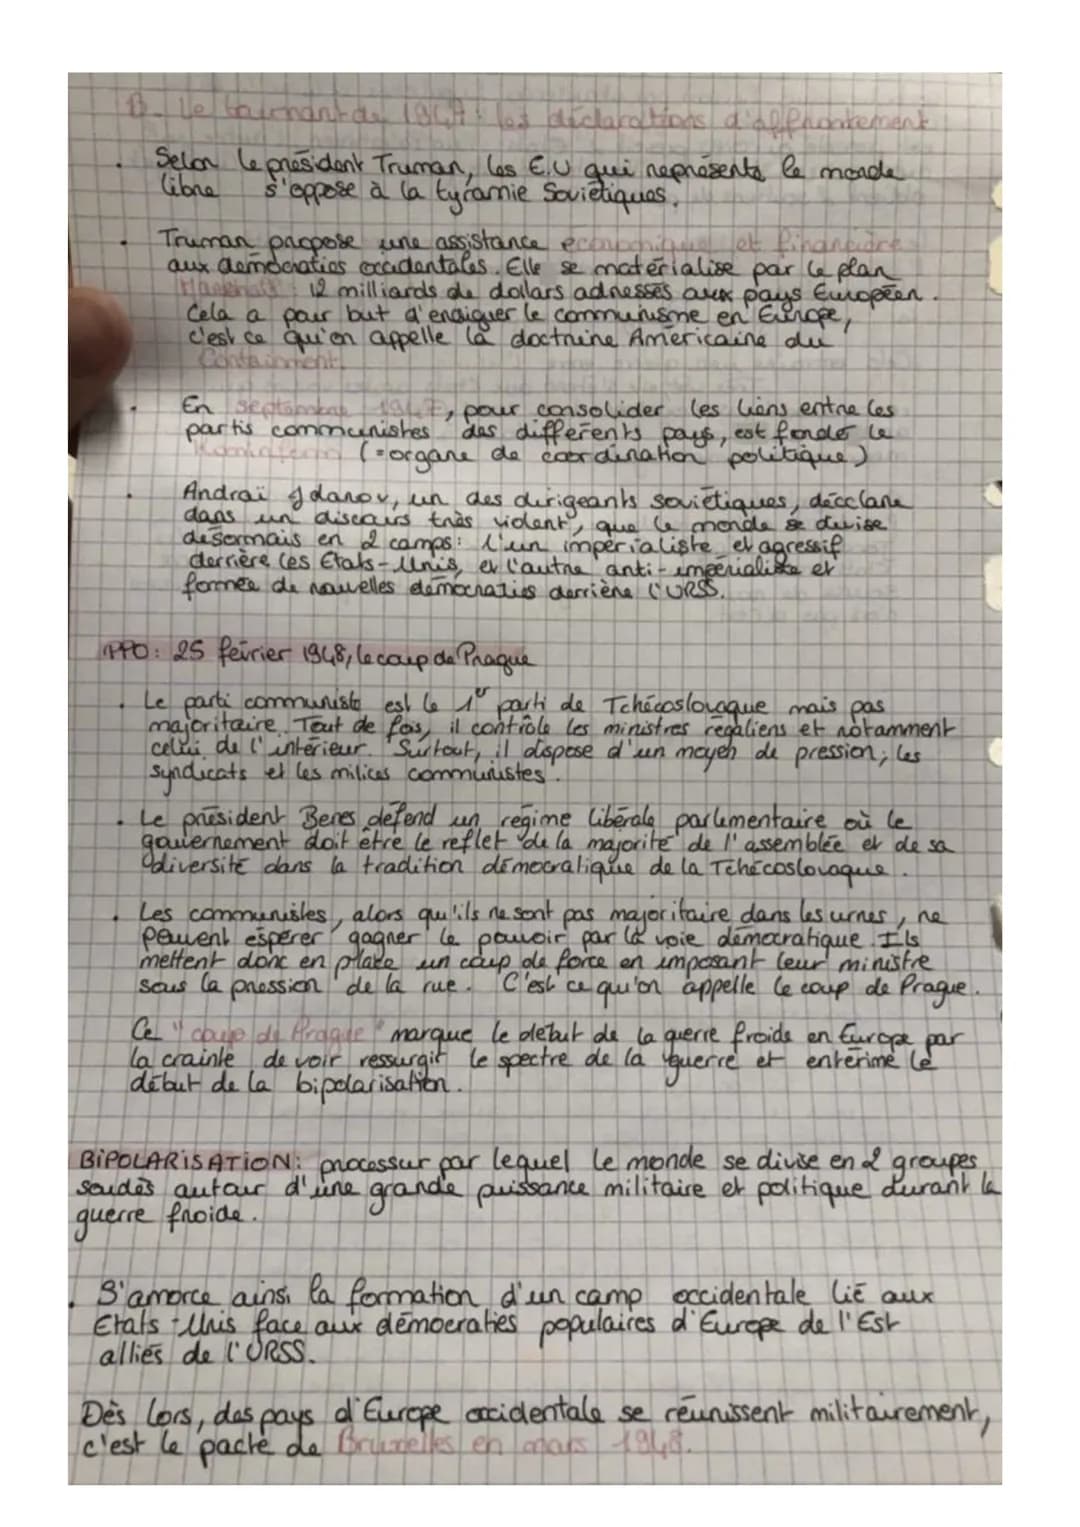 B. Le tournant de 1947 : les déclarations d'affrontement
. Selon le président Truman, les E.U qui représente le monde
libre s'oppose à la tyrannie Soviétiques.
. Truman propose une assistance économique et financière
aux démocraties occidentales. Elle se matérialise par le plan
Marshall : 12 milliards de dollars adressés aux pays Européen.
Cela a pour but d'endiguer le communisme en Europe,
c'est ce qu'on appelle la doctrine Américaine du
Containment.
. En septembre 1947, pour consolider les liens entre les
partis communistes des différents pays, est fonder le
Kominform (=organe de coordination politique)
. Andraï Jdanov, un des dirigeants soviétiques, décclare
dans un discours très violent, que le monde se divise
désormais en 2 camps: l'un impérialiste et agressif
derrière les Etats-Unis, et l'autre anti-impérialiste et
formée de nouvelles démocraties derrière l'URSS.
PPO: 25 février 1948, le coup de Prague
. Le parti communiste est le 1er parti de Tchécoslovaque mais pas
majoritaire. Tout de fois, il contrôle les ministres régaliens et notamment
celui de l'intérieur. Surtout, il dispose d'un moyen de pression; les
syndicats et les milices communistes.
. Le président Benes défend un régime libérale parlementaire où le
gouvernement doit être le reflet de la majorité de l'assemblée et de sa
diversité dans la tradition démocratique de la Tchécoslovaque.
. Les communistes, alors qu'ils ne sont pas majoritaire dans les urnes, ne
peuvent espérer gagner le pouvoir par la voie démocratique. Ils
mettent donc en place un coup de force en imposant leur ministre
sous la pression de la rue. C'est ce qu'on appelle le coup de Prague.
Ce "coup de Prague" marque le début de la guerre froide en Europe par
la crainte de voir ressurgit le spectre de la guerre et entérine le
début de la bipolarisation.
BIPOLARISATION: processur par lequel le monde se divise en 2 groupes
soudés autour d'une grande puissance militaire et politique durant la
guerre froide.
. S'amorce ainsi la formation d'un camp occidentale lié aux
Etats-Unis face aux démocraties populaires d'Europe de l'Est
alliés de l'URSS.
Dès lors, des pays d'Europe occidentale se réunissent militairement,
c'est le pacte de Bruxelles en mars 1948.